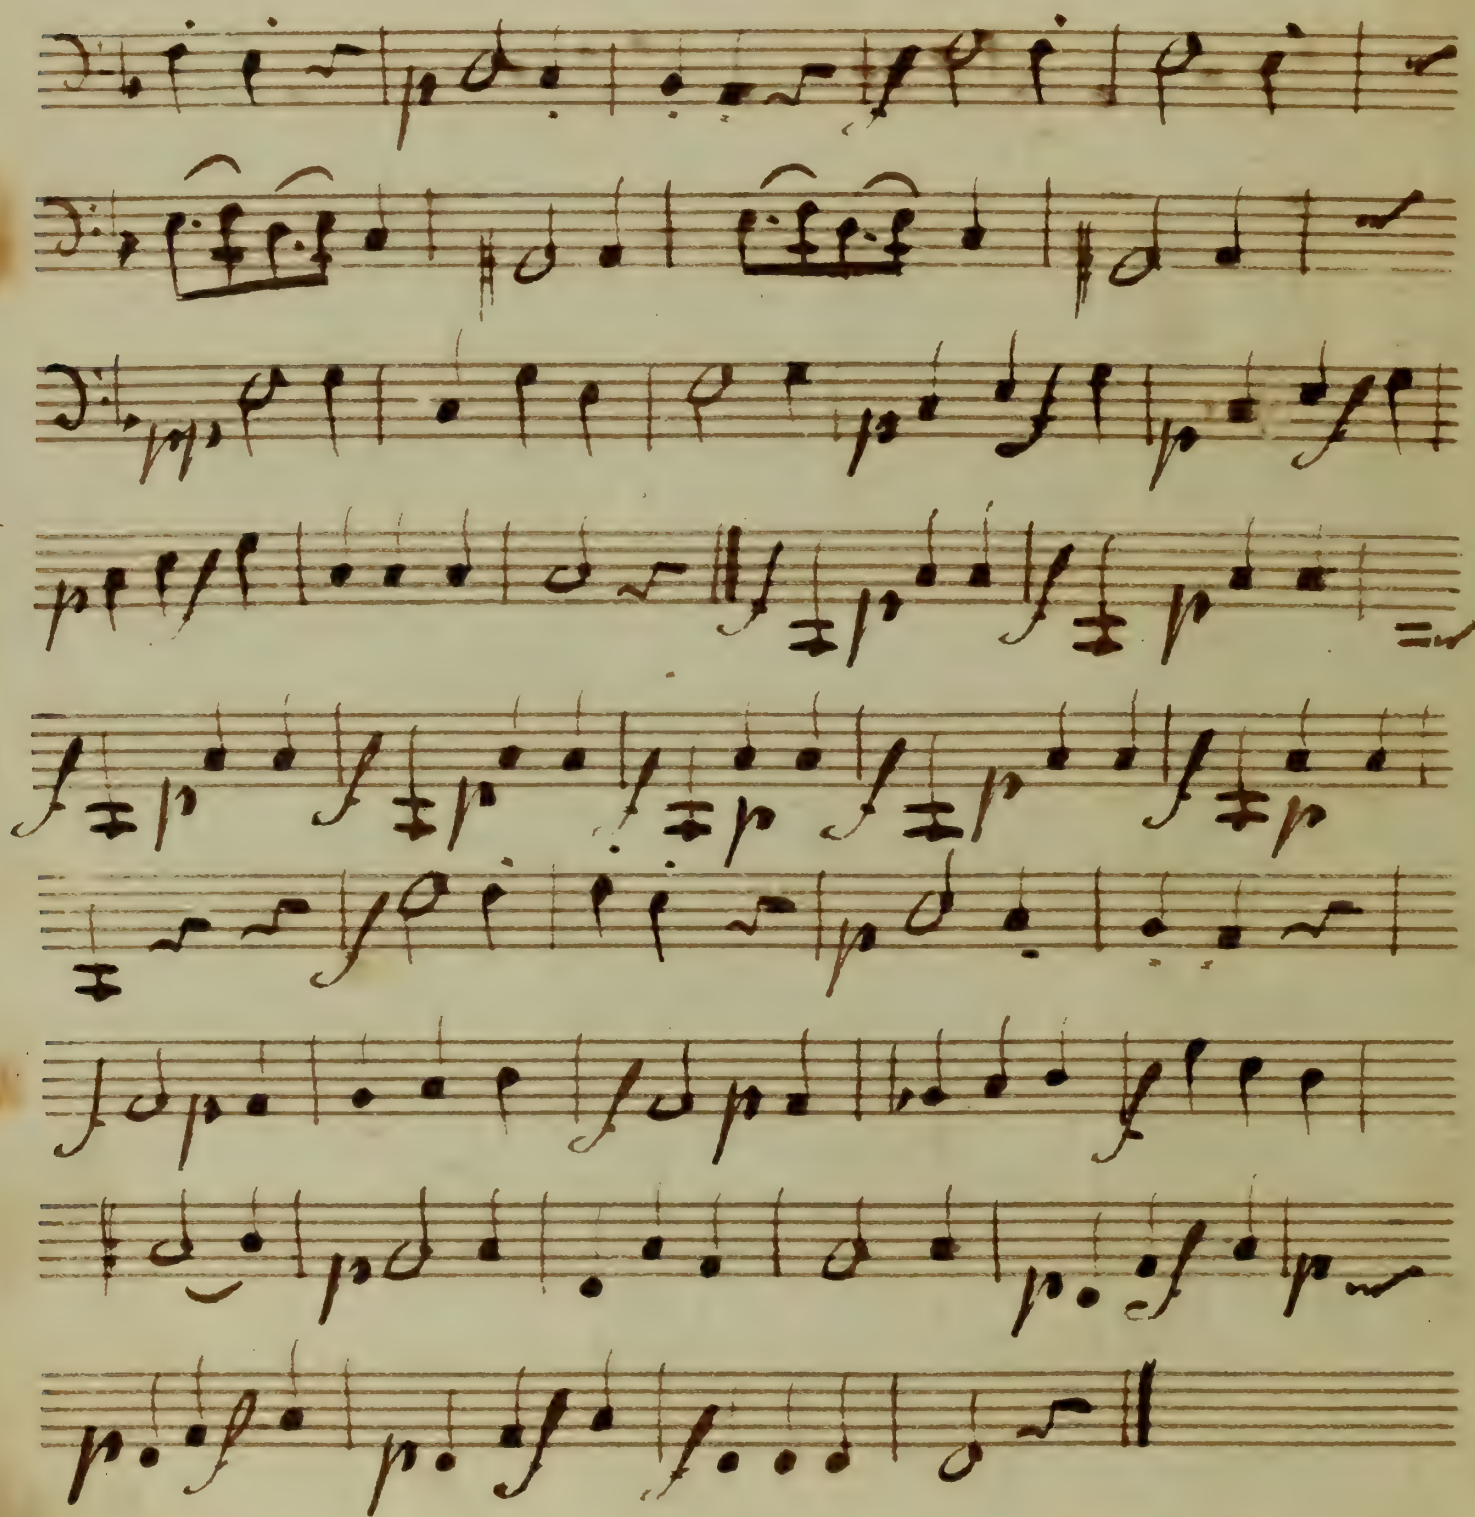 p f
pp p f p f
p f f p f p
f p f p f p f p f p
f p
f p f p f
p p f p
p f p f f